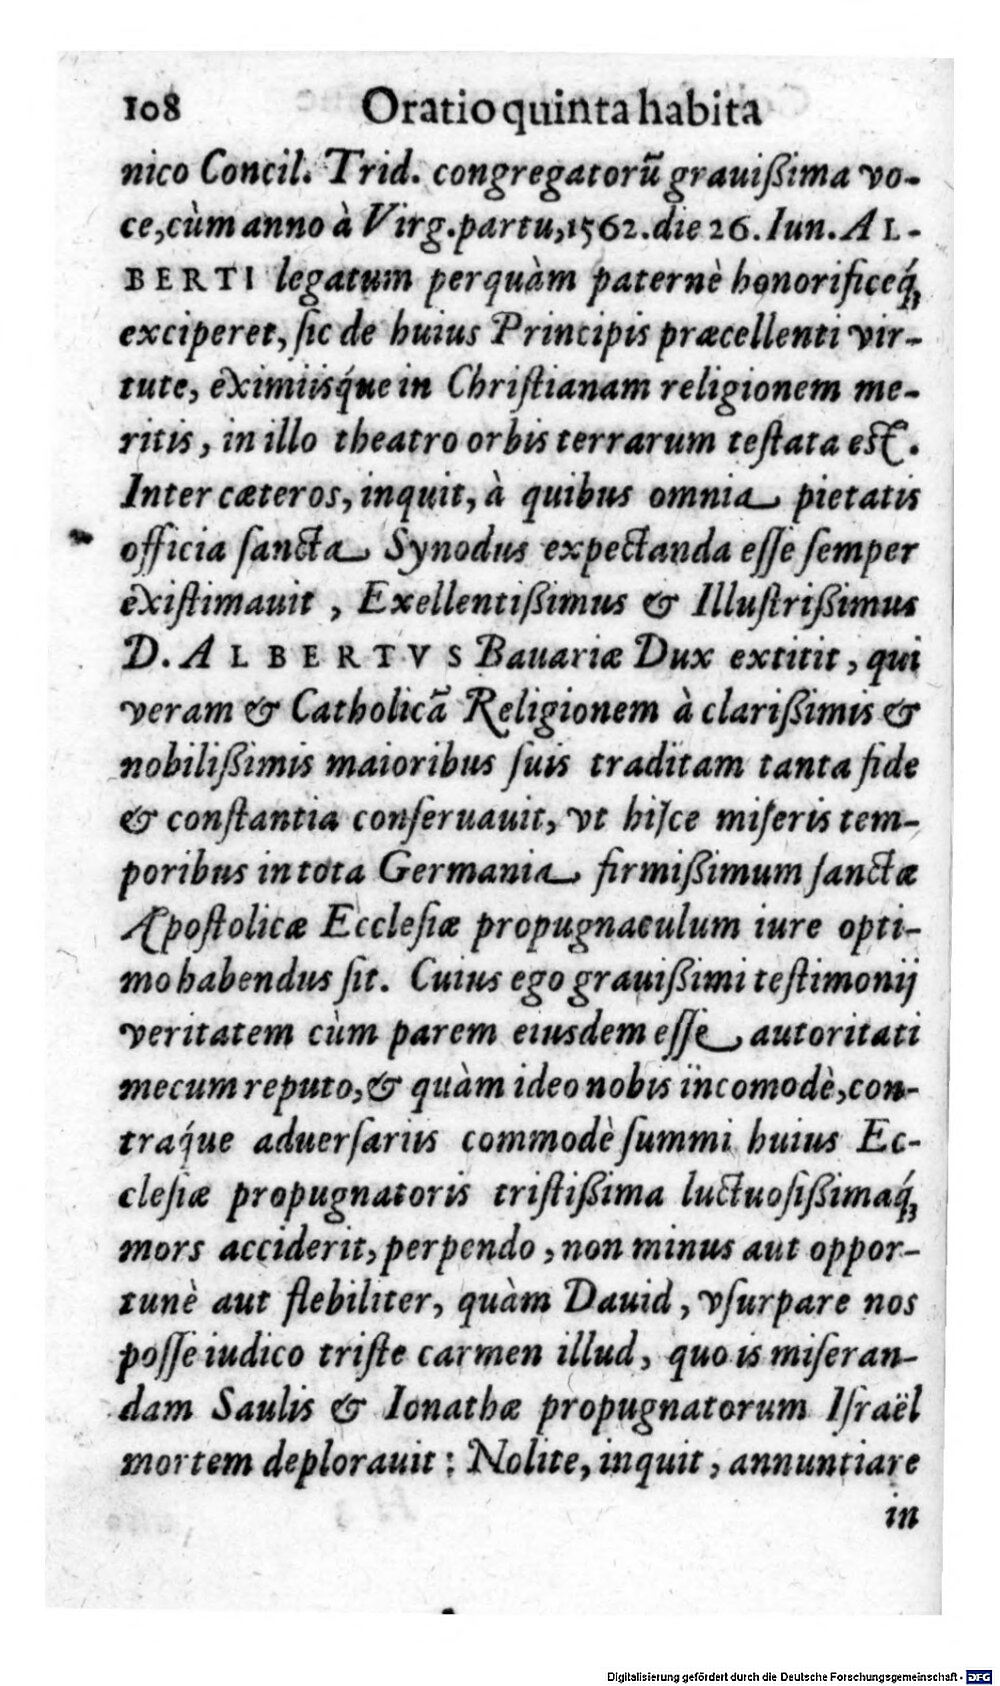 108 Oratio quinta habita
nico Concil. Trid. congregatorũ grauißima vo-
ce, cùm anno à Virg. partu, 1562. die 26. Iun. AL-
BERTI legatum perquàm paternè honorificeq́;
exciperet, ſic de huius Principis præcellenti vir-
tute, eximiisq́ue in Chriſtianam religionem me-
ritis, in illo theatro orbis terrarum teſtata eſt.
Inter cæteros, inquit, à quibus omnia pietatis
officia ſancta Synodus expectanda eſſe ſemper
exiſtimauit, Exellentißimus & Illuſtrißimus
D. ALBERTVS Bauariæ Dux extitit, qui
veram & Catholicã Religionem à clarißimis &
nobilißimis maioribus ſuis traditam tanta fide
& conſtantia conſeruauit, vt hiſce miſeris tem-
poribus in tota Germania firmißimum ſanctæ
Apoſtolicæ Eccleſiæ propugnaculum iure opti-
mo habendus ſit. Cuius ego grauißimi teſtimonij
veritatem cùm parem eiusdem eſſe autoritati
mecum reputo, & quàm ideo nobis incomodè, con-
traq́ue aduerſariis commodè ſummi huius Ec-
cleſiæ propugnatoris triſtißima luctuoſißimaq́;
mors acciderit, perpendo, non minus aut oppor-
tunè aut flebiliter, quàm Dauid, vſurpare nos
poſſe iudico triſte carmen illud, quo is miſeran-
dam Saulis & Ionathæ propugnatorum Iſraël
mortem deplorauit: Nolite, inquit, annuntiare
in
Digitalisierung gefördert durch die Deutsche Forschungsgemeinschaft - DFG